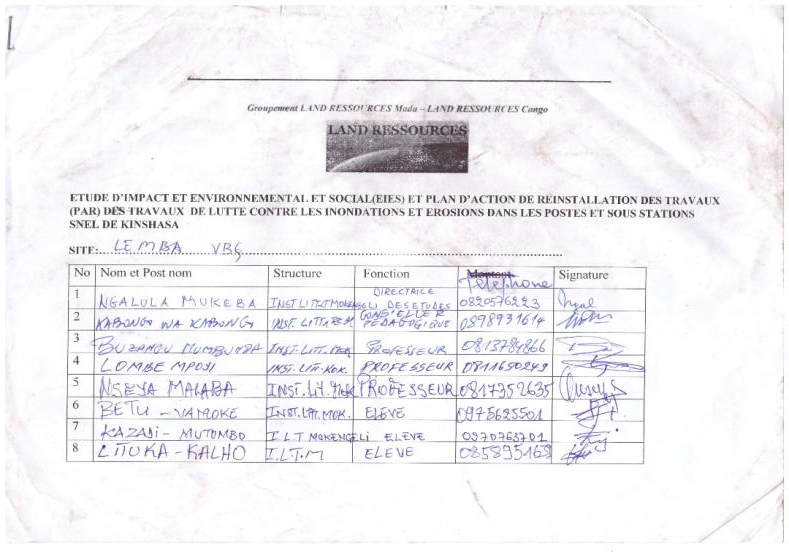 Groupement LAND RESSOURCES Mada – LAND RESSOURCES Congo
LAND RESSOURCES
ETUDE D'IMPACT ET ENVIRONNEMENTAL ET SOCIAL(EIES) ET PLAN D'ACTION DE RÉINSTALLATION DES TRAVAUX
(PAR) DES TRAVAUX DE LUTTE CONTRE LES INONDATIONS ET EROSIONS DANS LES POSTES ET SOUS STATIONS
SNEL DE KINSHASA
SITE: LEMBA VBG
No Nom et Post nom Structure Fonction Montant Téléphone Signature
1 NGALULA MUKEBA INST LIT MOKENGELI DIRECTRICE DES ETUDES 0820576223
2 KABONGO WA KABONGO INST. LIT. CONSEILLER PEDAGOGIQUE 0898931614
3 INST. LIT. MOK. PROFESSEUR 0813784866
4 LOMBE MPOYI INST. LIT. KOK. PROFESSEUR 0811650249
5 NSEYA MALABA INST. LIT. MOK PROFESSEUR 0817352635
6 BETU - VAMOKE INST. LIT. MOK. ELEVE 0975625501
7 KAZADI - MUTOMBO I.L.T MOKENGELI ELEVE 0970763701
8 LITUKA - KALHO I.L.T.M ELEVE 085895169